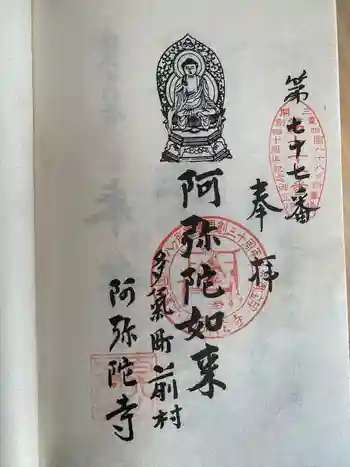 第七十七番
奉拝
阿弥陀如来
多氣町前村
阿弥陀寺